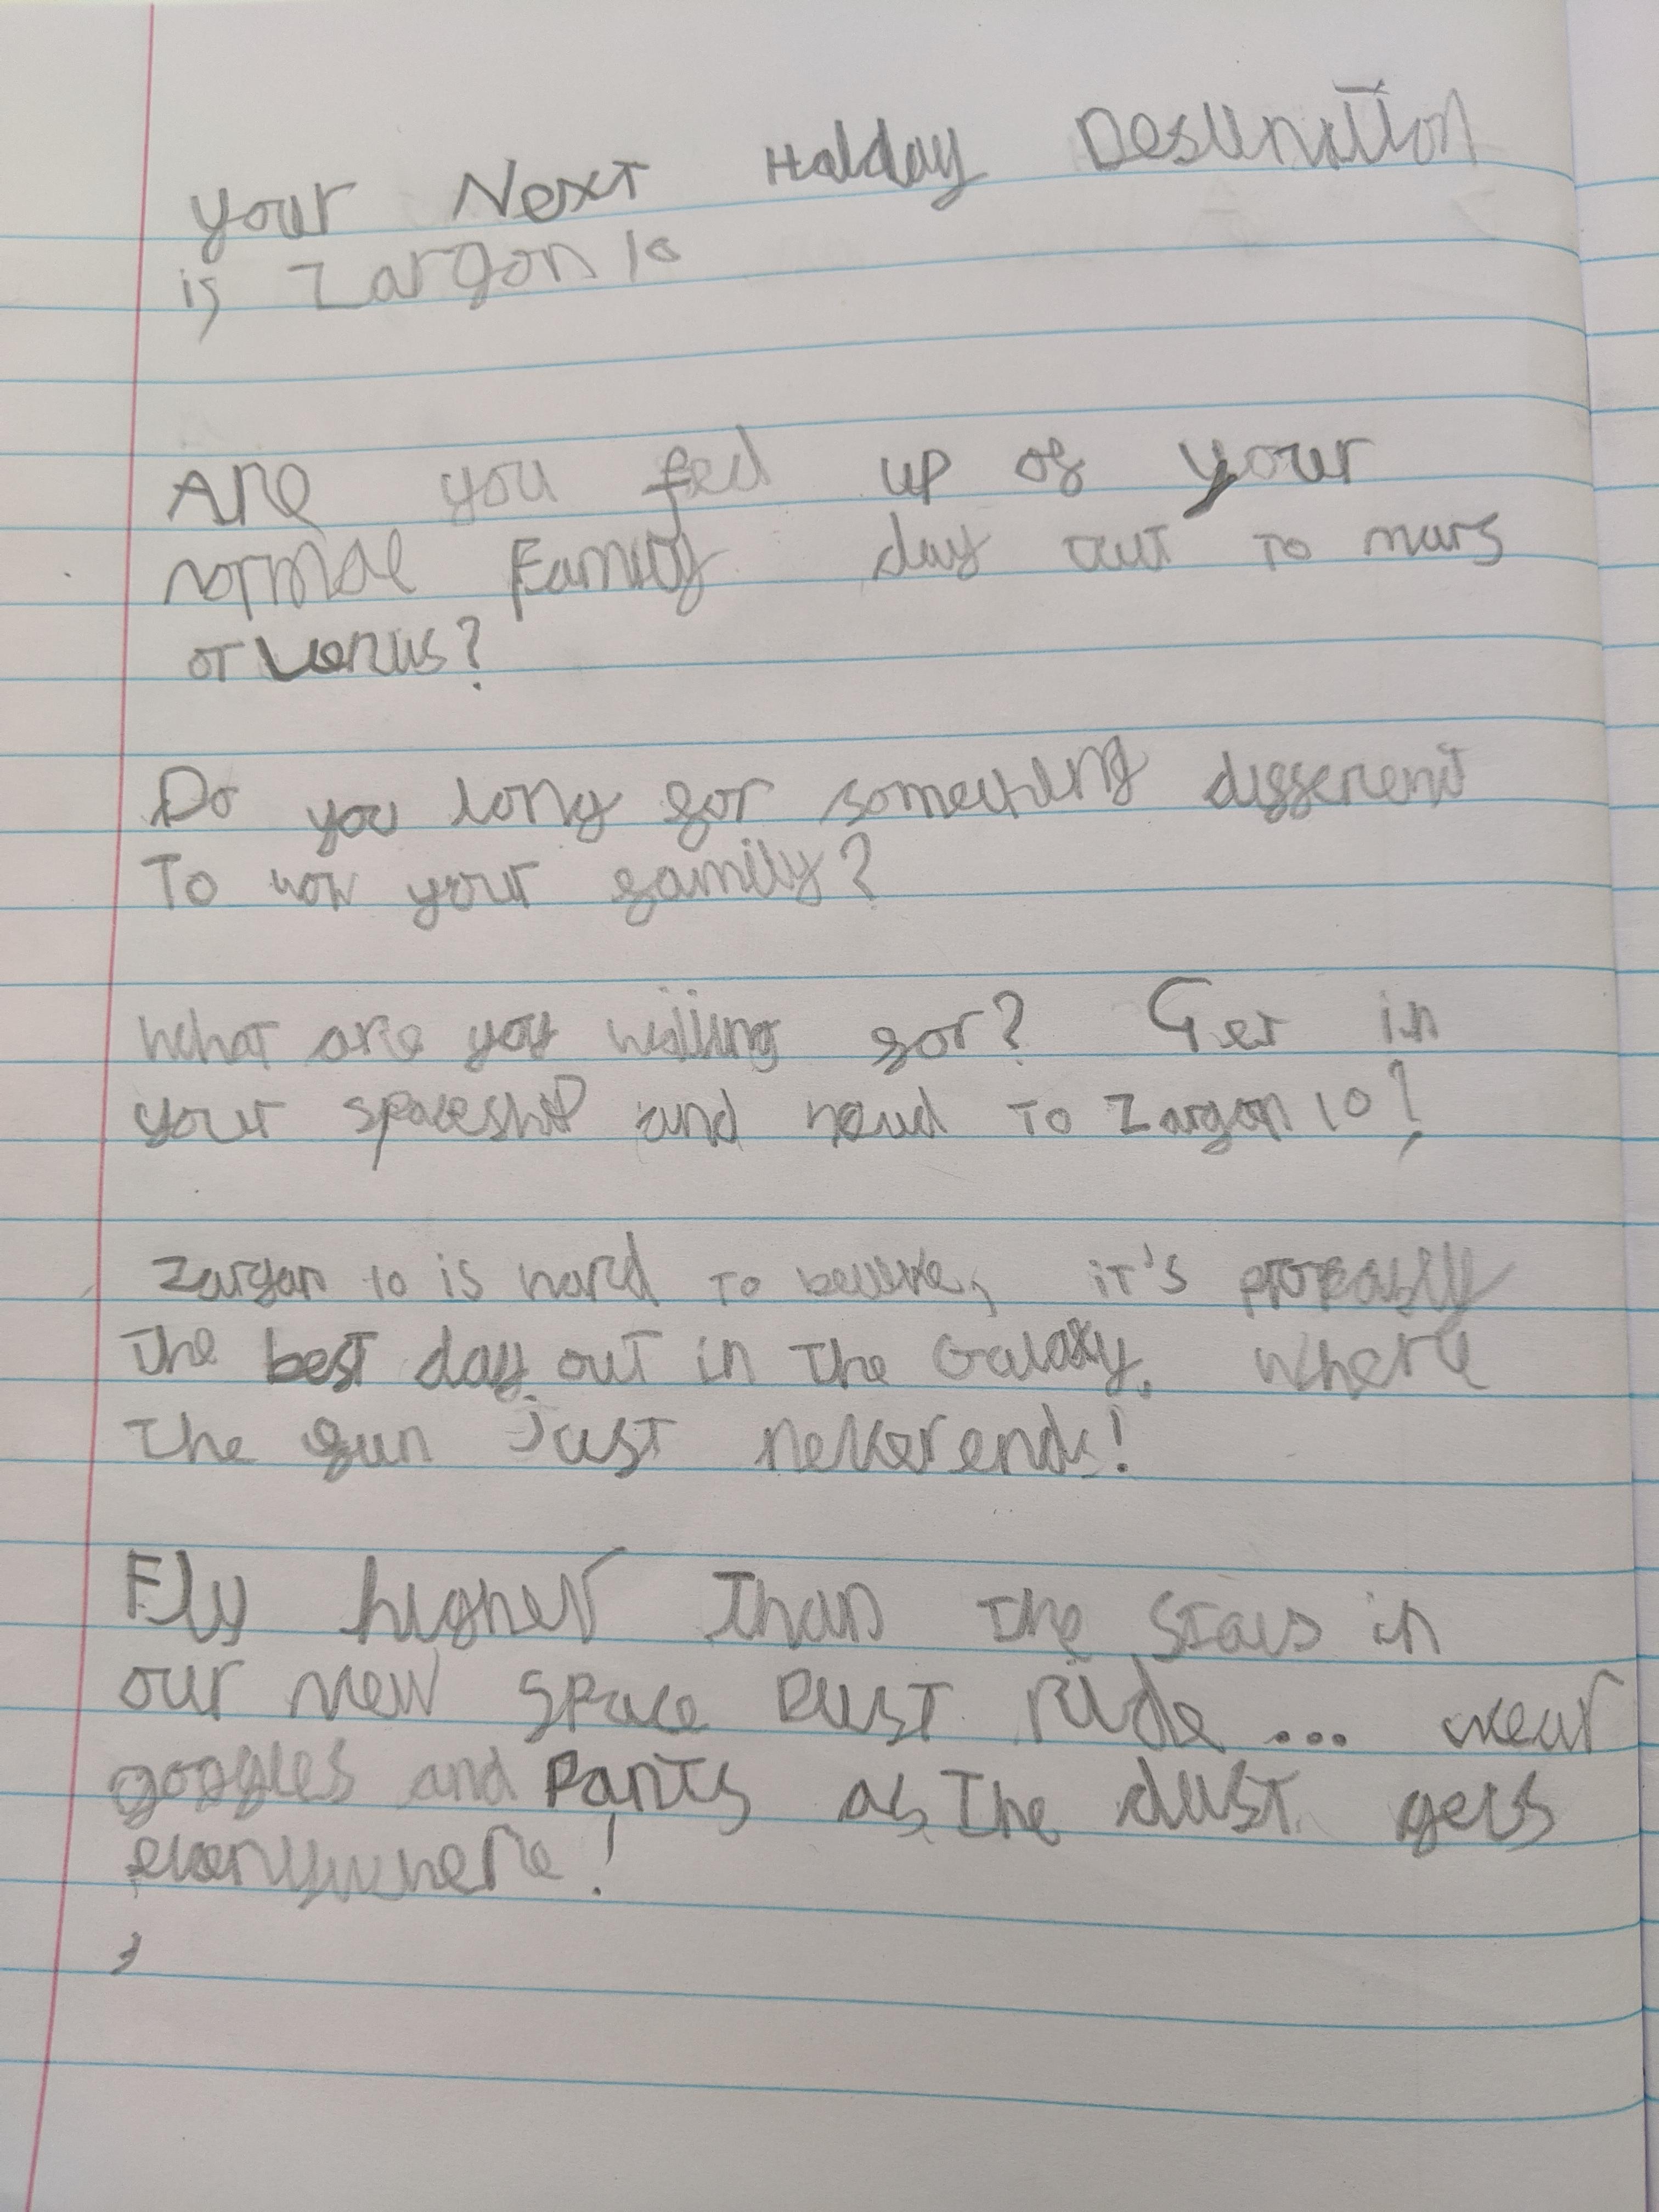 your Next Halday Destination
is Zargon 10
Are you fed up of your
normal Family day out to mars
or venus?
Do you long for something different
To wow your family?
What are you waiting for? Get in
your spaceship and head to Zargon 10!
Zargon 10 is hard to believe, it's propably
the best day out in the Galaxy, where
the fun Just never ends!
Fly higher Than the stars in
our new space Dust ride... wear
goggles and Pants as The dust gets
everywhere!